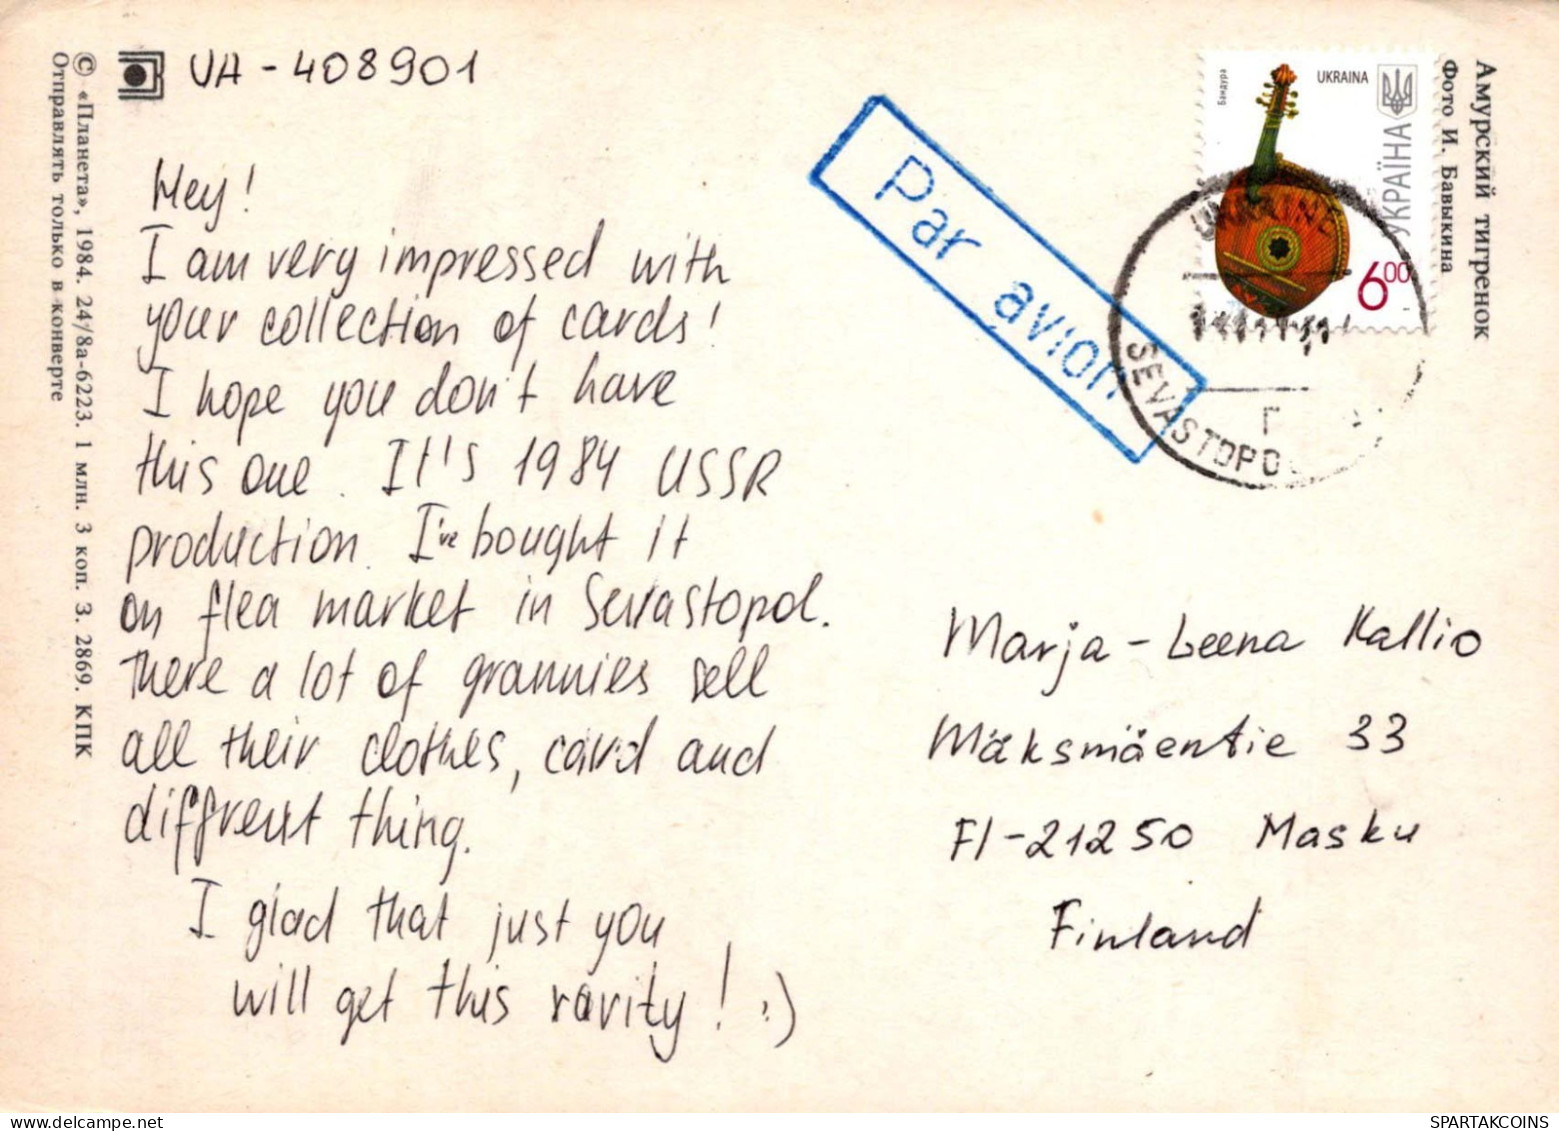 UA-408901
Hey!
I am very impressed with
your collection of cards!
I hope you don't have
this one. It's 1984 USSR
production. I've bought it
on flea market in Sevastopol.
There a lot of grannies sell
all their clothes, card and
different thing.
I glad that just you
will get this rarity! :)
© «Планета», 1984. 24/8а-6223. 1 млн. 3 коп. З. 2869. КПК
Отправлять только в конверте
Par avion
Бандура
UKRAINA
УКРАЇНА
6.00
UKRAINE
SEVASTOPO
Г
Амурский тигренок
Фото И. Бавыкина
Marja-Leena Kallio
Mäksmäentie 33
FI-21250 Masku
Finland
SPARTAKCOINS